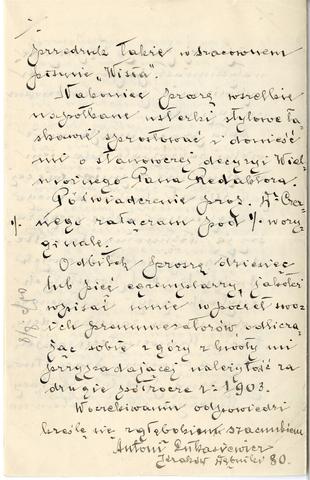 przedruk także w szacownem
piśmie „Wisła".
Nakoniec proszę wszelkie
napotkane usterki stylowe ła-
skawie sprostować i donieść
mi o stanowczej decyzyi Wiel-
możnego Pana Redaktora.
Poświadczenie prof. Hr. Czar-
nego załączam pod ·/. w ory-
ginale.
Odbitek proszę dziesięć
lub pięć egzemplarzy, jakoteż
wpisać mnie w poczet swo-
ich prenumeratorów, odlicza-
jąc sobie z góry z kwoty mi
przypadającej należytość za
drugie półrocze r: 1903.
W oczekiwaniu odpowiedzi
kreślę się z głębokim szacunkiem
Antoni Łukasiewicz
Kraków Dębniki 80.